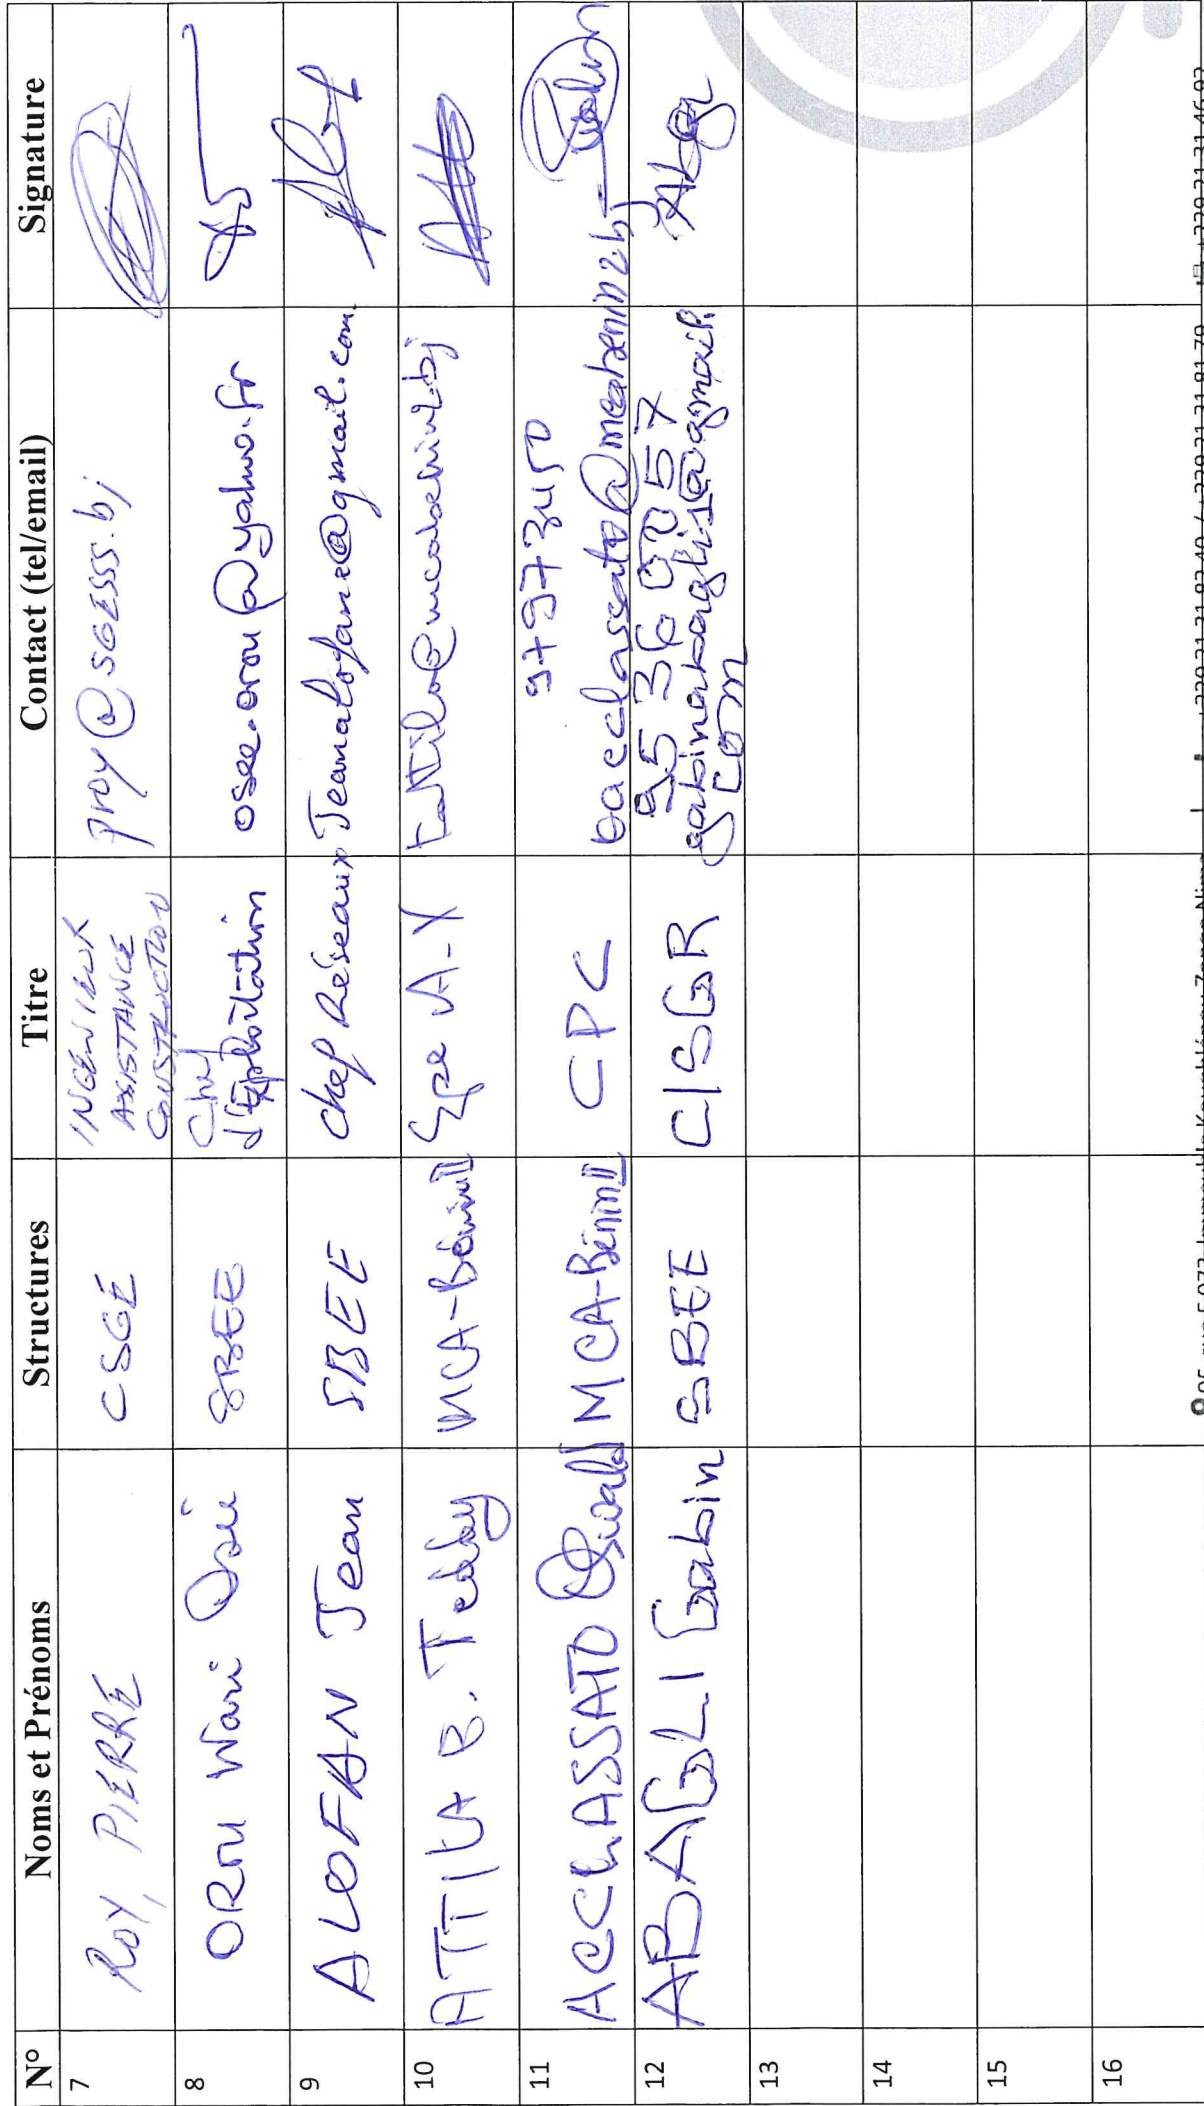 N° Noms et Prénoms Structures Titre Contact (tel/email) Signature
7 ROY, PIERRE CSGÉ INGÉNIEUR ASSISTANCE CONSTRUCTION proy@sgesss.bj
8 OROU Wari Osée SBEE Chef d'Exploitation osee.orou@yahoo.fr
9 ALOFAN Jean SBEE Chef Réseaux Jeanalofane@gmail.com
10 ATTILA B. Teddy MCA-Bénin II Spe A-Y
11 ACCLASSATO Oswald MCA-Bénin II CPC
oacclassato@mcabenin2.bj
12 ABAGLI Gabin SBEE C/SGR 95 36 00 57
gabinabagli1@gmail.
com
13
14
15
16